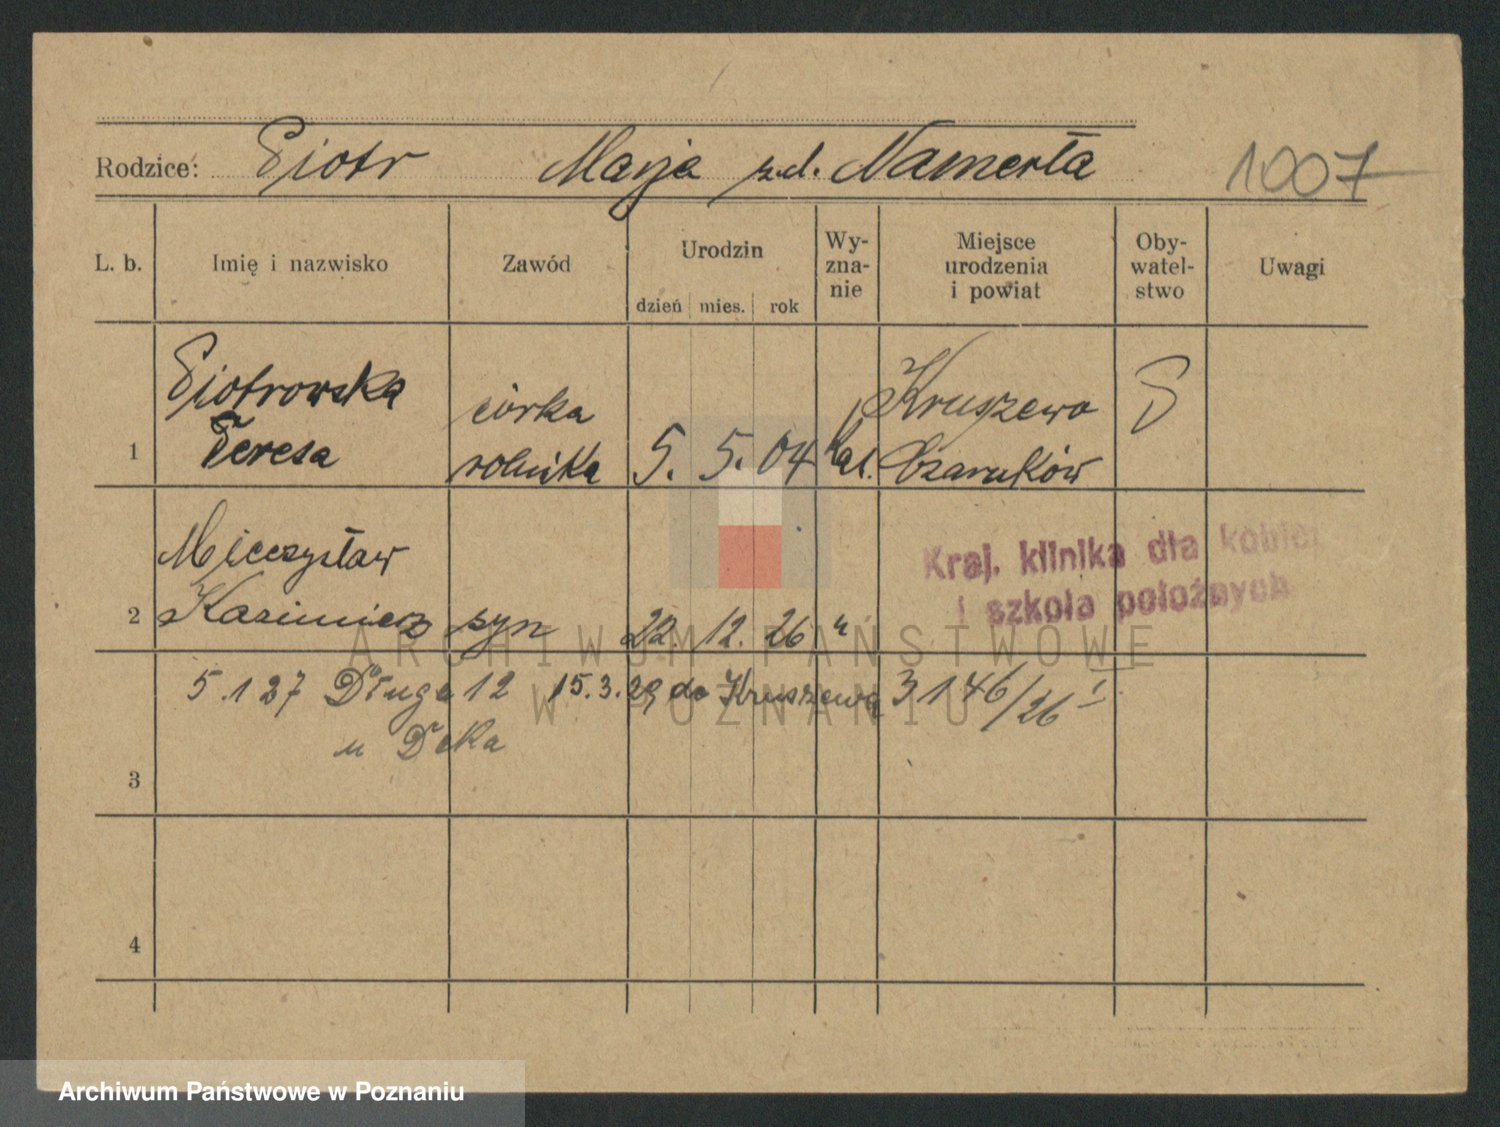 Rodzice: Piotr Marja z.d. Namerła
1007
L. b. Imię i nazwisko Zawód Urodzin dzień mies. rok Wy-zna-nie Miejsce urodzenia i powiat Oby-watel-stwo Uwagi
Piotrowska córka Kruszewo P
1 Teresa rolnika 5. 5. 04 kat. Czarnków
Mieczysław
Kraj. klinika dla kobiet
i szkoła położnych
2 Kazimierz syn 22. 12. 26 "
5.1 27 Długa 12 15.3.29 do Kruszewa 3146/26 I
u Deka
3
4
ARCHIWUM PAŃSTWOWE
W POZNANIU
Archiwum Państwowe w Poznaniu